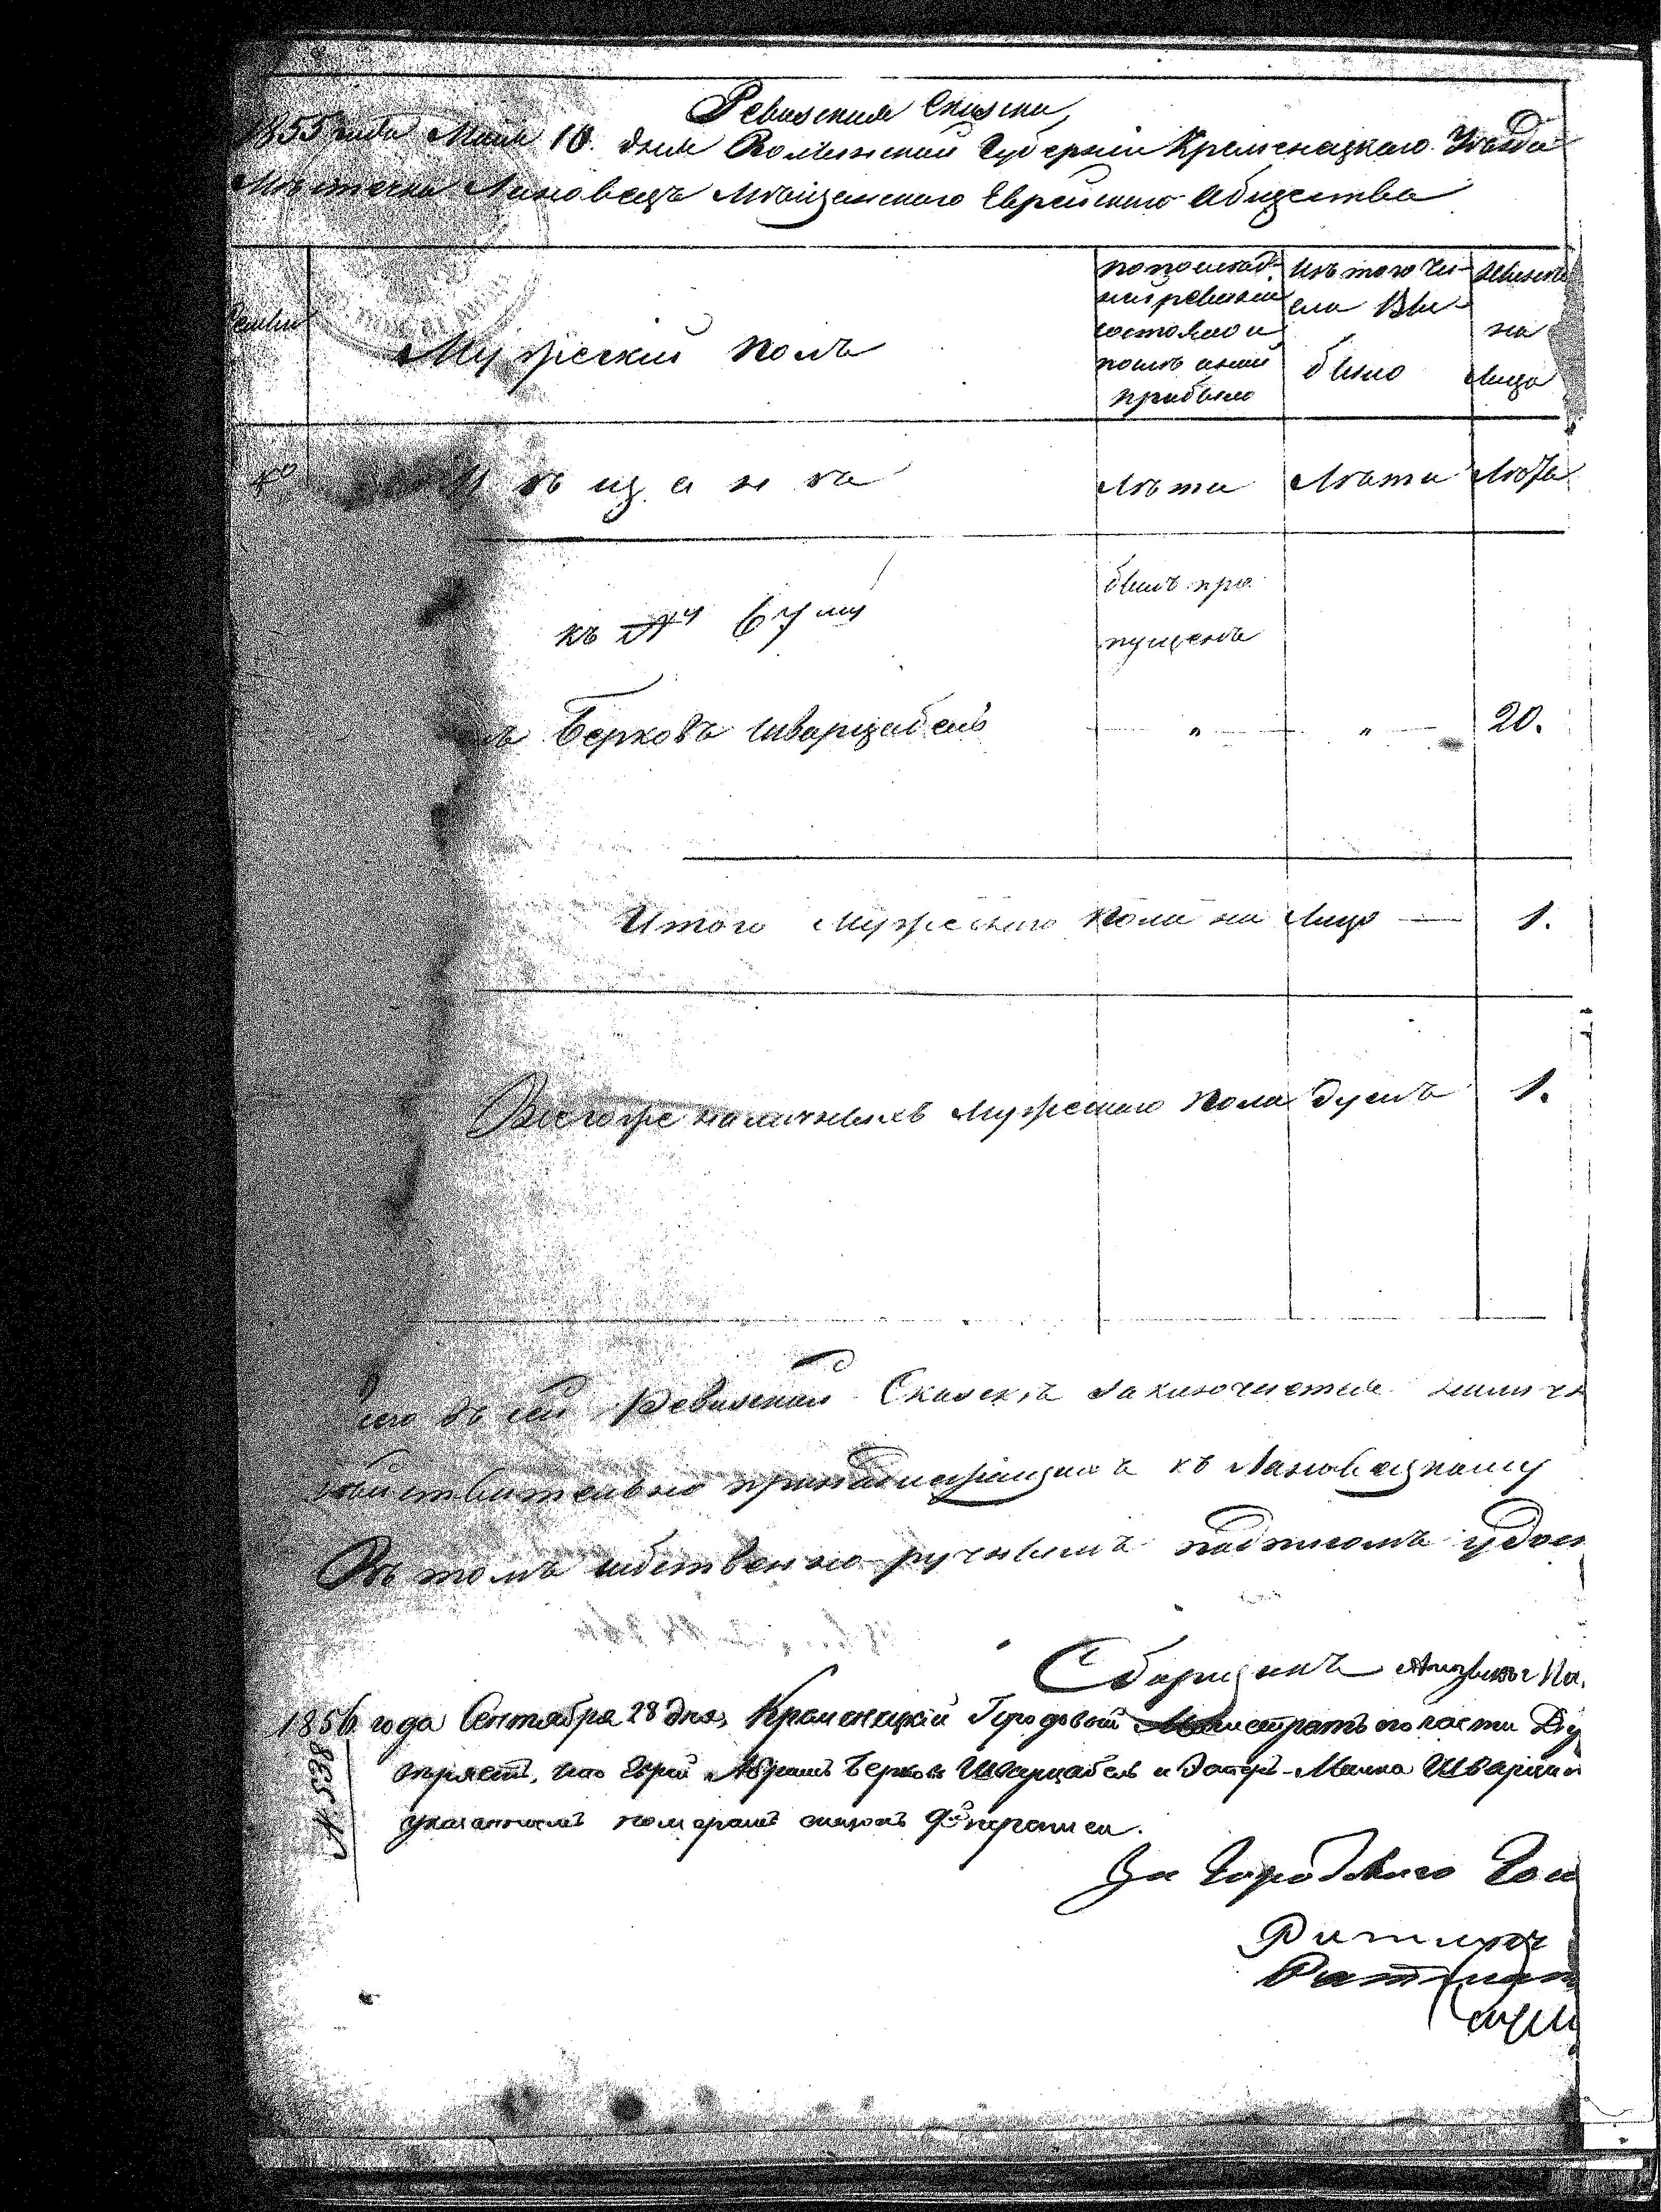 Ревизская Сказка
1855 года Маия 10. дня Волынской Губерніи Кременецкаго Уѣзда
Мѣстечка Лановецъ Мѣщанскаго Еврейскаго Общества
Мужескій полъ
по послѣд-
ней ревизіи
состояло и
послѣ оной
прибыло
Изъ того чи-
сла вы-
было
Нынѣ
на
лицо
Мѣщанѣ
Лѣта
Лѣта
Лѣта
къ №у 67му
былъ про
пущенъ
Берковъ Шварцабель
" " 20.
Итого мужескаго пола на лицо — 1.
Всегоже наличныхъ мужескаго пола душъ 1.
въ сей Ревизской Сказкѣ заключается
принадлежащихъ къ Лановецкому
Въ томъ собственно-ручнымъ подписомъ удос
Сборщикъ
1856 года Сентября 28 дня, Кременецкій Городовой Магистратъ по части
что Еврей Абрамъ Берковъ Шварцабель и Малка Шварца
указаннымъ номерамъ сказокъ 9й переписи.
№ 538
За Городскаго Гол
Ратманъ
Ратман